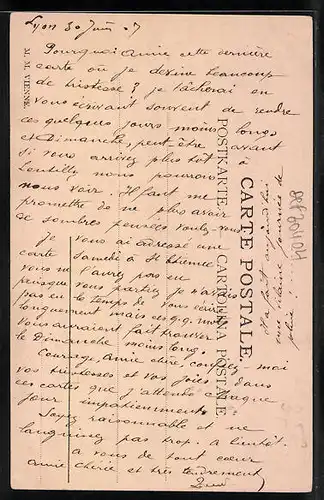 Lyon 30 Juin 07
Pourquoi Amie cette dernière
carte où je devine beaucoup
de tristesse? je tâcherai en
vous écrivant souvent de rendre
ces quelques jours moins longs
et Dimanche, peut-être avant
si vous arrivez plus tôt à
Lentilly nous pourrons
nous voir. Il faut me
promettre de ne plus avoir
de sombres pensées voulez-vous
Je vous ai adressé une
carte Samedi à St Etienne
vous ne l'aurez pas eu
puisque vous partiez je n'avais
pas eu le temps de vous écrire
longuement mais ces q.q. mots
vous auraient fait trouver
le Dimanche moins long.
Courage, Amie chère, contez-moi
vos tristesses et vos joies dans
ces cartes que j'attends chaque
jour impatiemment.
Soyez raisonnable et ne
languissez pas trop. à bientôt
à vous de tout cœur
Amie chérie et très tendrement
il a fait aujourd'hui
une vilaine journée de
pluie!
M. M. VIENNE
POSTKARTE
CARTOLINA POSTALE
CARTE POSTALE